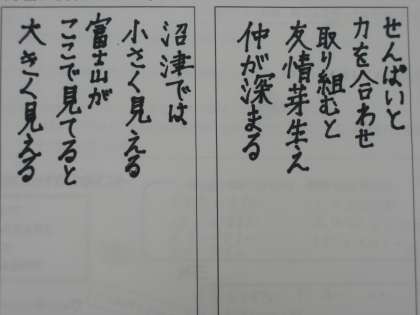 せんぱいと
力を合わせ
取り組むと
友情芽生え
仲が深まる
沼津では
小さく見える
富士山が
ここで見てると
大きく見える